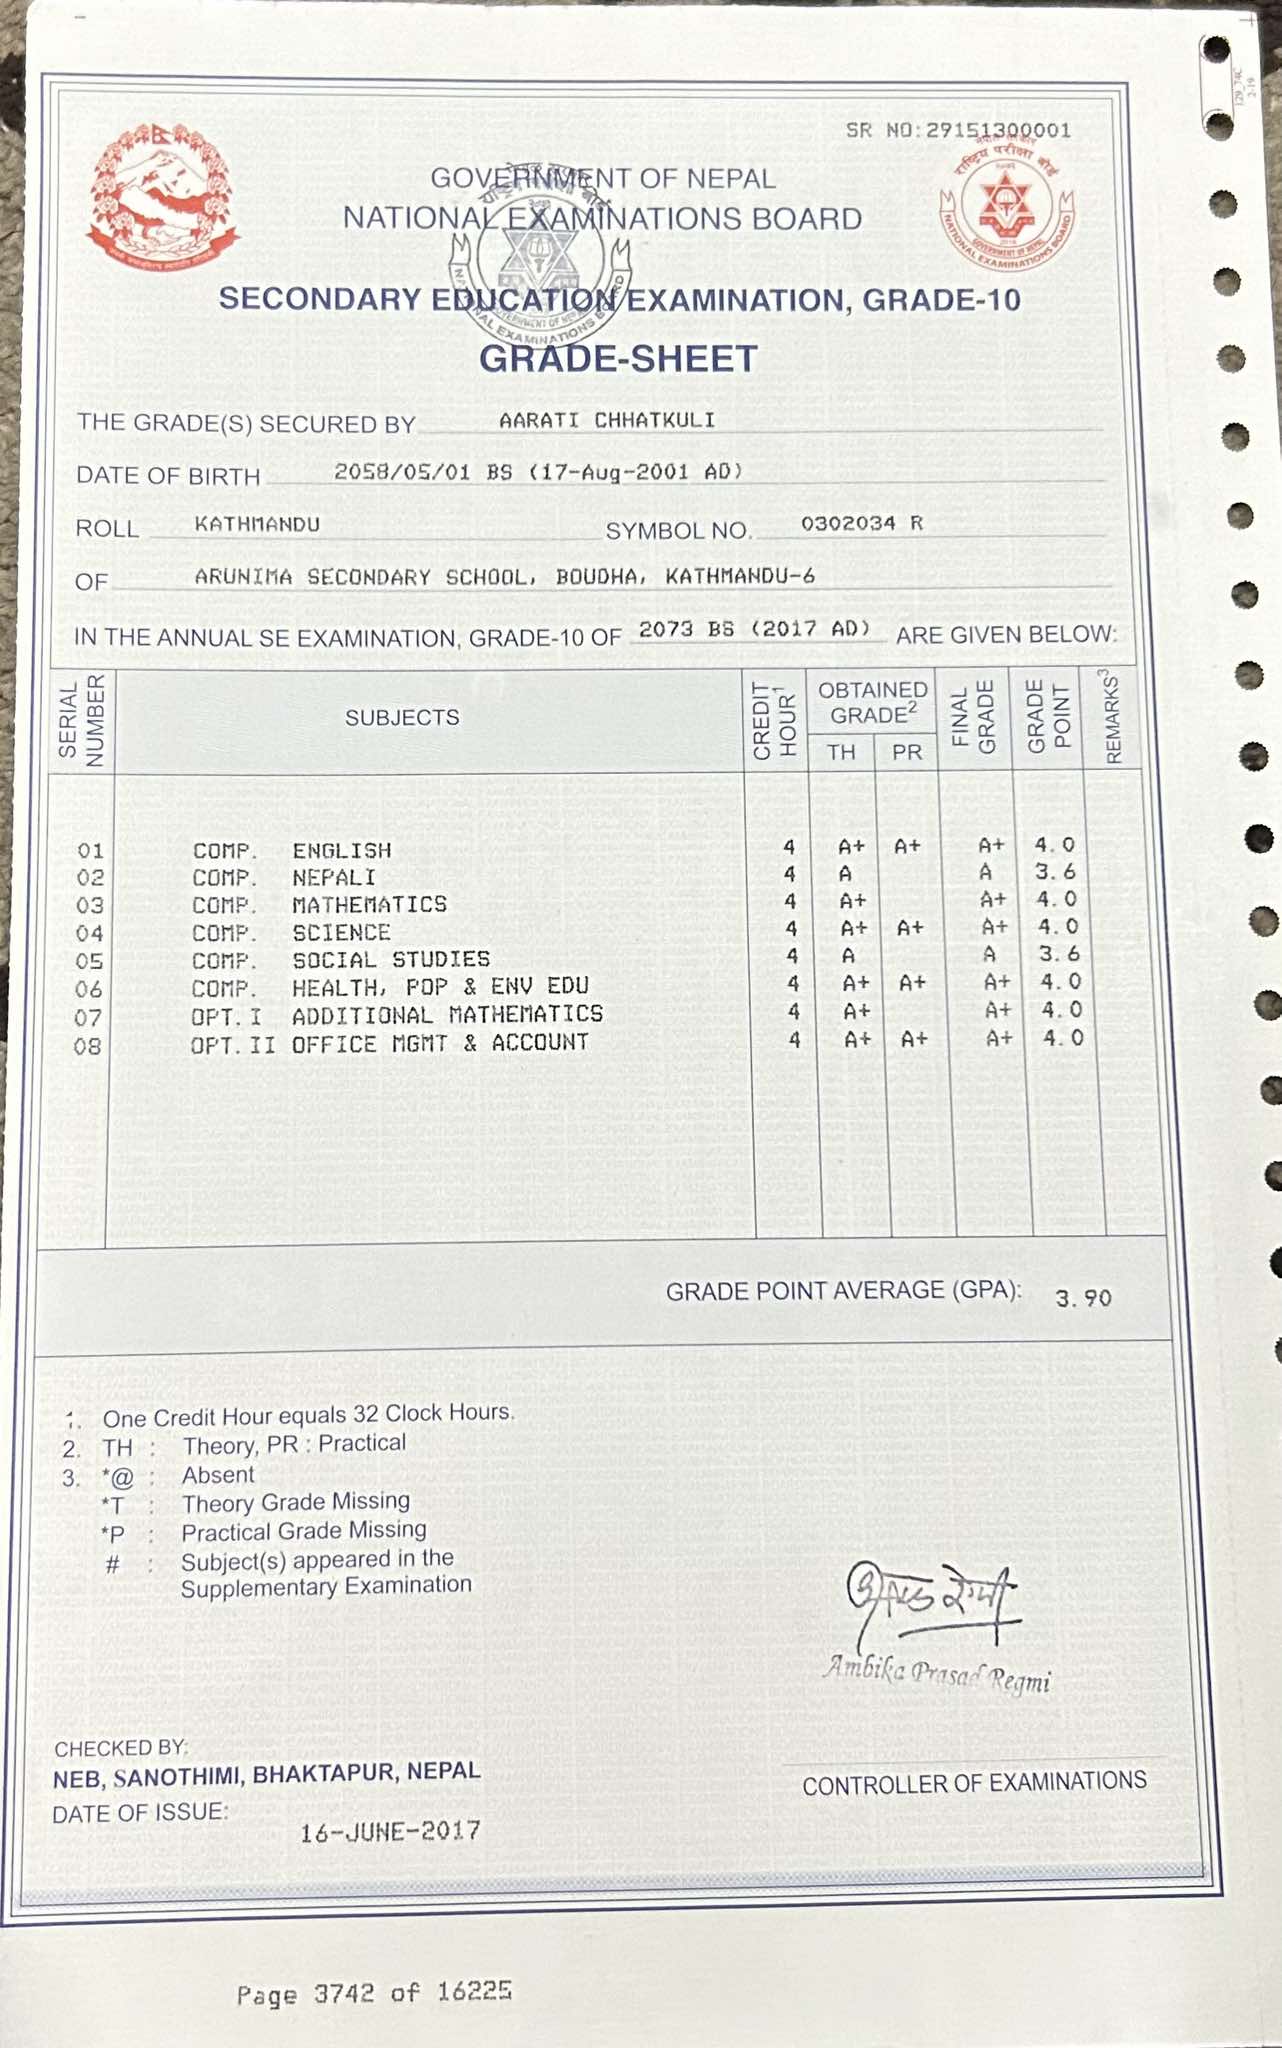 129_74C
2-19
SR NO:29151300001
GOVERNMENT OF NEPAL
NATIONAL EXAMINATIONS BOARD
राष्ट्रिय परीक्षा बोर्ड
NATIONAL EXAMINATIONS BOARD
GOVERNMENT OF NEPAL
SECONDARY EDUCATION EXAMINATION, GRADE-10
GRADE-SHEET
THE GRADE(S) SECURED BY AARATI CHHATKULI
DATE OF BIRTH 2058/05/01 BS (17-Aug-2001 AD)
ROLL KATHMANDU SYMBOL NO. 0302034 R
OF ARUNIMA SECONDARY SCHOOL, BOUDHA, KATHMANDU-6
IN THE ANNUAL SE EXAMINATION, GRADE-10 OF 2073 BS (2017 AD) ARE GIVEN BELOW:
SERIAL NUMBER SUBJECTS CREDIT HOUR1 OBTAINED GRADE2 FINAL GRADE GRADE POINT REMARKS3
TH PR
01 COMP. ENGLISH 4 A+ A+ A+ 4.0
02 COMP. NEPALI 4 A A 3.6
03 COMP. MATHEMATICS 4 A+ A+ 4.0
04 COMP. SCIENCE 4 A+ A+ A+ 4.0
05 COMP. SOCIAL STUDIES 4 A A 3.6
06 COMP. HEALTH, POP & ENV EDU 4 A+ A+ A+ 4.0
07 OPT.I ADDITIONAL MATHEMATICS 4 A+ A+ 4.0
08 OPT.II OFFICE MGMT & ACCOUNT 4 A+ A+ A+ 4.0
GRADE POINT AVERAGE (GPA): 3.90
1. One Credit Hour equals 32 Clock Hours.
2. TH : Theory, PR : Practical
3. *@ : Absent
*T : Theory Grade Missing
*P : Practical Grade Missing
# : Subject(s) appeared in the
Supplementary Examination
Ambika Prasad Regmi
CHECKED BY:
NEB, SANOTHIMI, BHAKTAPUR, NEPAL
CONTROLLER OF EXAMINATIONS
DATE OF ISSUE: 16-JUNE-2017
Page 3742 of 16225